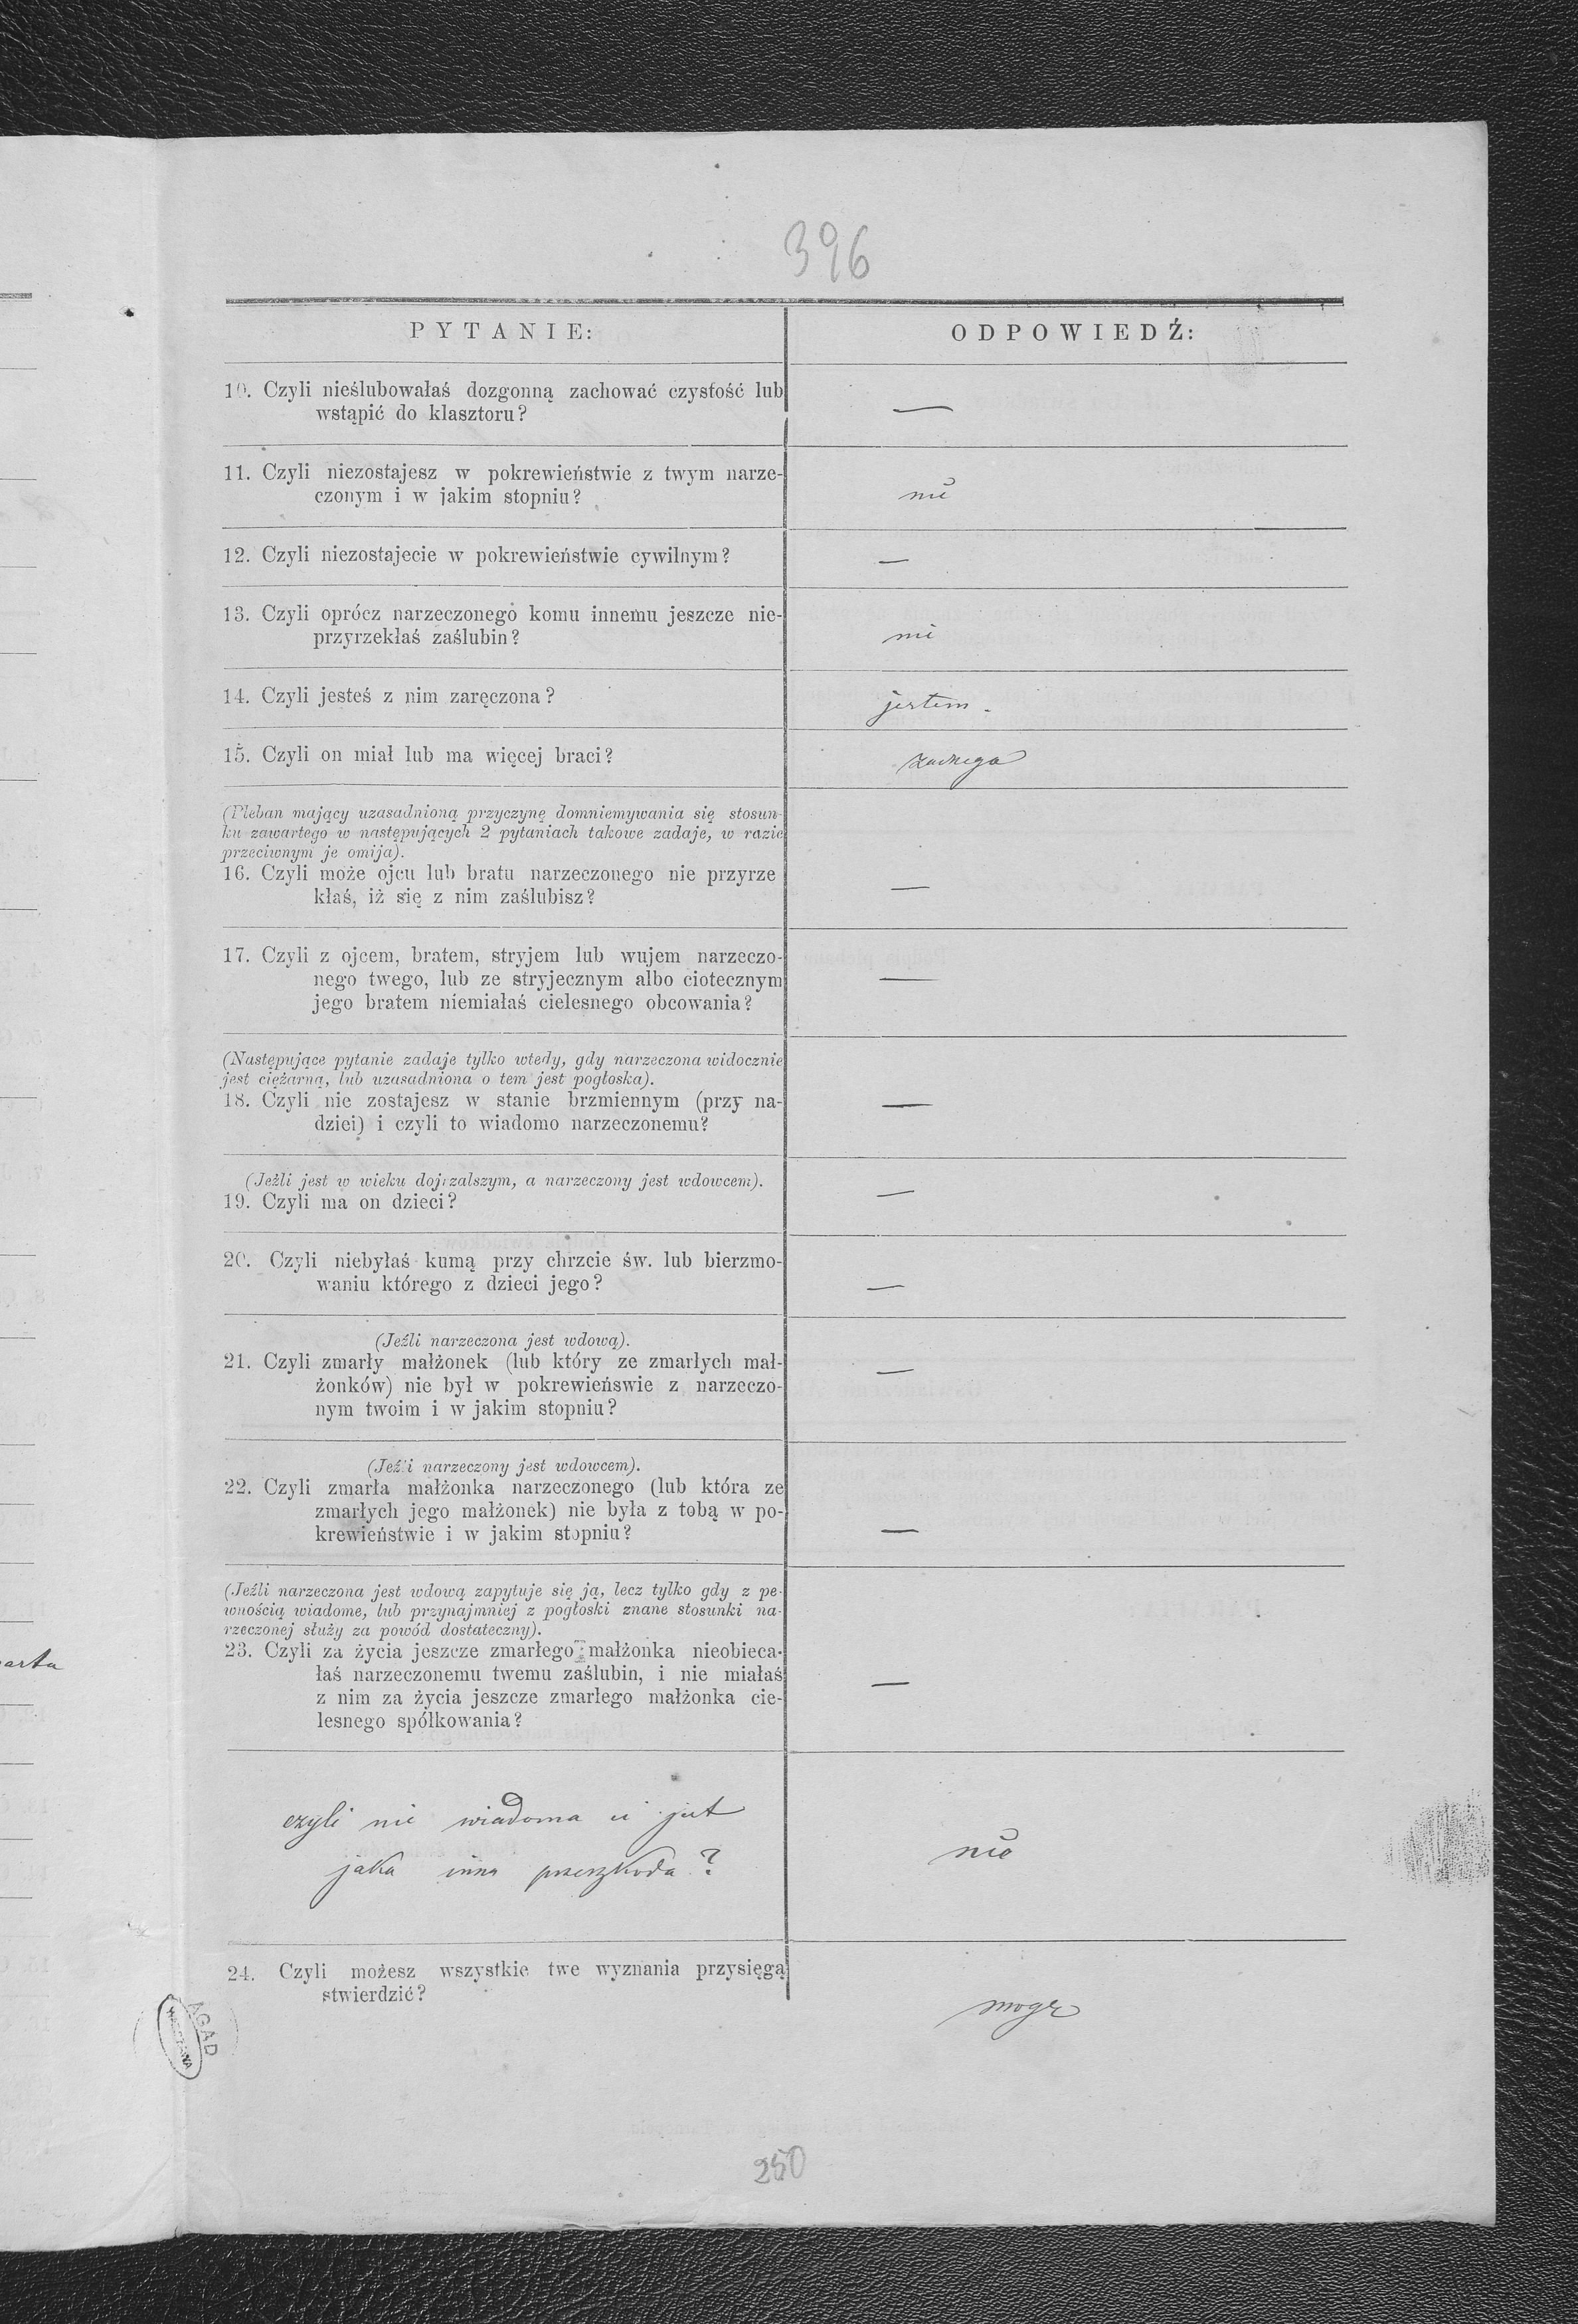 396
PYTANIE:
ODPOWIEDŹ:
10. Czyli nieślubowałaś dozgonną zachować czystość lub
wstąpić do klasztoru?
—
11. Czyli niezostajesz w pokrewieństwie z twym narze-
czonym i w jakim stopniu?
nie
12. Czyli niezostajecie w pokrewieństwie cywilnym?
—
13. Czyli oprócz narzeczonego komu innemu jeszcze nie-
przyrzekłaś zaślubin?
nie
14. Czyli jesteś z nim zaręczona?
jestem.
15. Czyli on miał lub ma więcej braci?
(Pleban mający uzasadnioną przyczynę domniemywania się stosun-
ku zawartego w następujących 2 pytaniach takowe zadaje, w razie
przeciwnym je omija).
16. Czyli może ojcu lub bratu narzeczonego nie przyrze
kłaś, iż się z nim zaślubisz?
—
17. Czyli z ojcem, bratem, stryjem lub wujem narzeczo-
nego twego, lub ze stryjecznym albo ciotecznym
jego bratem niemiałaś cielesnego obcowania?
—
(Następujące pytanie zadaje tylko wtedy, gdy narzeczona widocznie
jest ciężarną, lub uzasadniona o tem jest pogłoska).
18. Czyli nie zostajesz w stanie brzmiennym (przy na-
dziei) i czyli to wiadomo narzeczonemu?
—
(Jeźli jest w wieku dojrzalszym, a narzeczony jest wdowcem).
19. Czyli ma on dzieci?
—
20. Czyli niebyłaś kumą przy chrzcie św. lub bierzmo-
waniu którego z dzieci jego?
—
(Jeźli narzeczona jest wdową).
21. Czyli zmarły małżonek (lub który ze zmarłych mał-
żonków) nie był w pokrewieńswie z narzeczo-
nym twoim i w jakim stopniu?
—
(Jeźli narzeczony jest wdowcem).
22. Czyli zmarła małżonka narzeczonego (lub która ze
zmarłych jego małżonek) nie była z tobą w po-
krewieństwie i w jakim stopniu?
—
(Jeźli narzeczona jest wdową zapytuje się ją, lecz tylko gdy z pe-
wnością wiadome, lub przynajmniej z pogłoski znane stosunki na-
rzeczonej służy za powód dostateczny).
23. Czyli za życia jeszcze zmarłego małżonka nieobieca-
łaś narzeczonemu twemu zaślubin, i nie miałaś
z nim za życia jeszcze zmarłego małżonka cie-
lesnego spółkowania?
—
arta
czyli nie wiadoma ci jest
jaka inna przeszkoda?
nie
24. Czyli możesz wszystkie twe wyznania przysięgą
stwierdzić?
mogę
AGAD
WARSZAWA
250